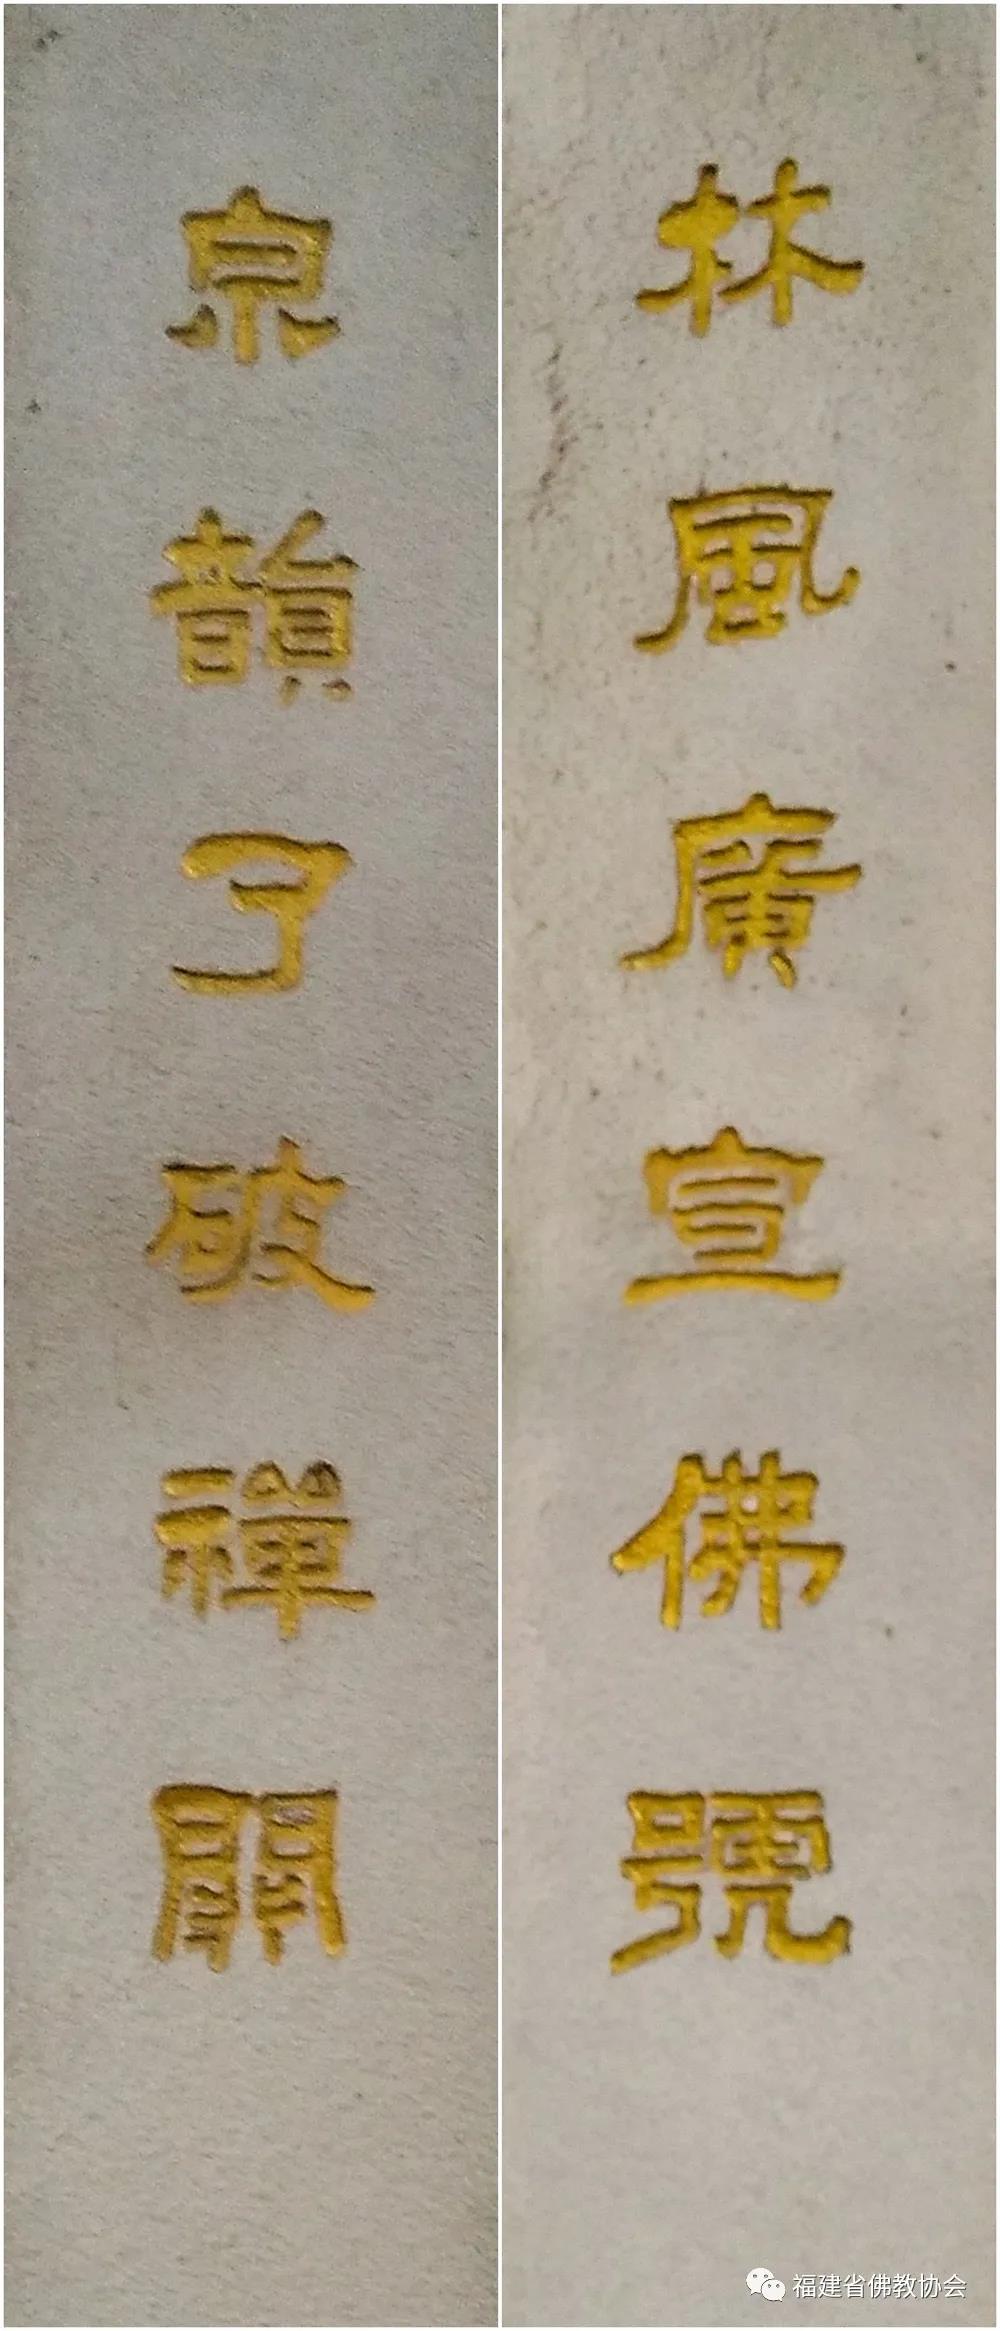 林風廣宣佛號
泉韻了破禪關
福建省佛教协会